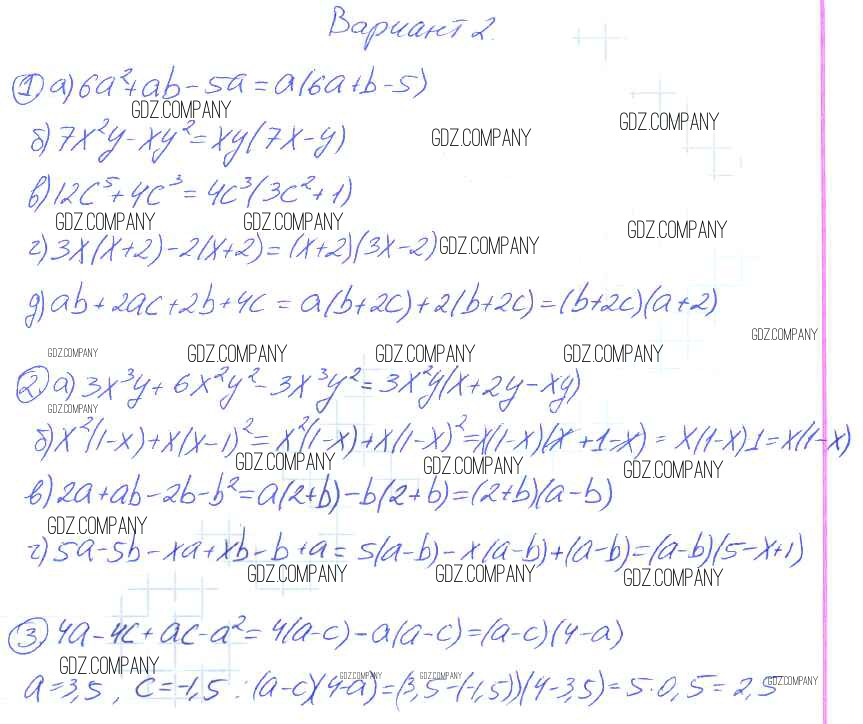 Вариант 2.
1 а) 6a²+ab-5a=a(6a+b-5)
GDZ.COMPANY GDZ.COMPANY GDZ.COMPANY
б) 7x²y-xy²=xy(7x-y)
в) 12c⁵+4c³=4c³(3c²+1)
GDZ.COMPANY GDZ.COMPANY GDZ.COMPANY
г) 3x(x+2)-2(x+2)=(x+2)(3x-2) GDZ.COMPANY
д) ab+2ac+2b+4c=a(b+2c)+2(b+2c)=(b+2c)(a+2)
GDZ.COMPANY
GDZ.COMPANY GDZ.COMPANY GDZ.COMPANY GDZ.COMPANY
2 а) 3x³y+6x²y²-3x³y²=3x²y(x+2y-xy)
GDZ.COMPANY
б) x²(1-x)+x(x-1)²=x²(1-x)+x(1-x)²=x(1-x)(x+1-x)=x(1-x)1=x(1-x)
GDZ.COMPANY GDZ.COMPANY GDZ.COMPANY
в) 2a+ab-2b-b²=a(2+b)-b(2+b)=(2+b)(a-b)
GDZ.COMPANY
г) 5a-5b-xa+xb-b+a=5(a-b)-x(a-b)+(a-b)=(a-b)(5-x+1)
GDZ.COMPANY GDZ.COMPANY GDZ.COMPANY
3 4a-4c+ac-a²=4(a-c)-a(a-c)=(a-c)(4-a)
GDZ.COMPANY GDZ.COMPANY GDZ.COMPANY GDZ.COMPANY
a=3,5, c=-1,5: (a-c)(4-a)=(3,5-(-1,5))(4-3,5)=5·0,5=2,5